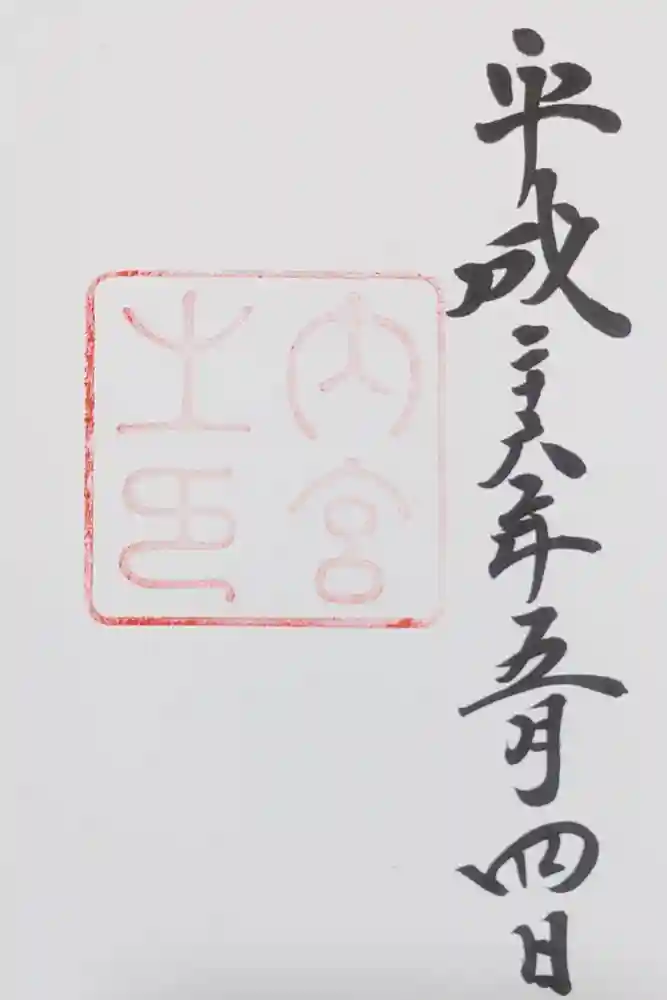 平成二十六年五月四日
内宮
之印